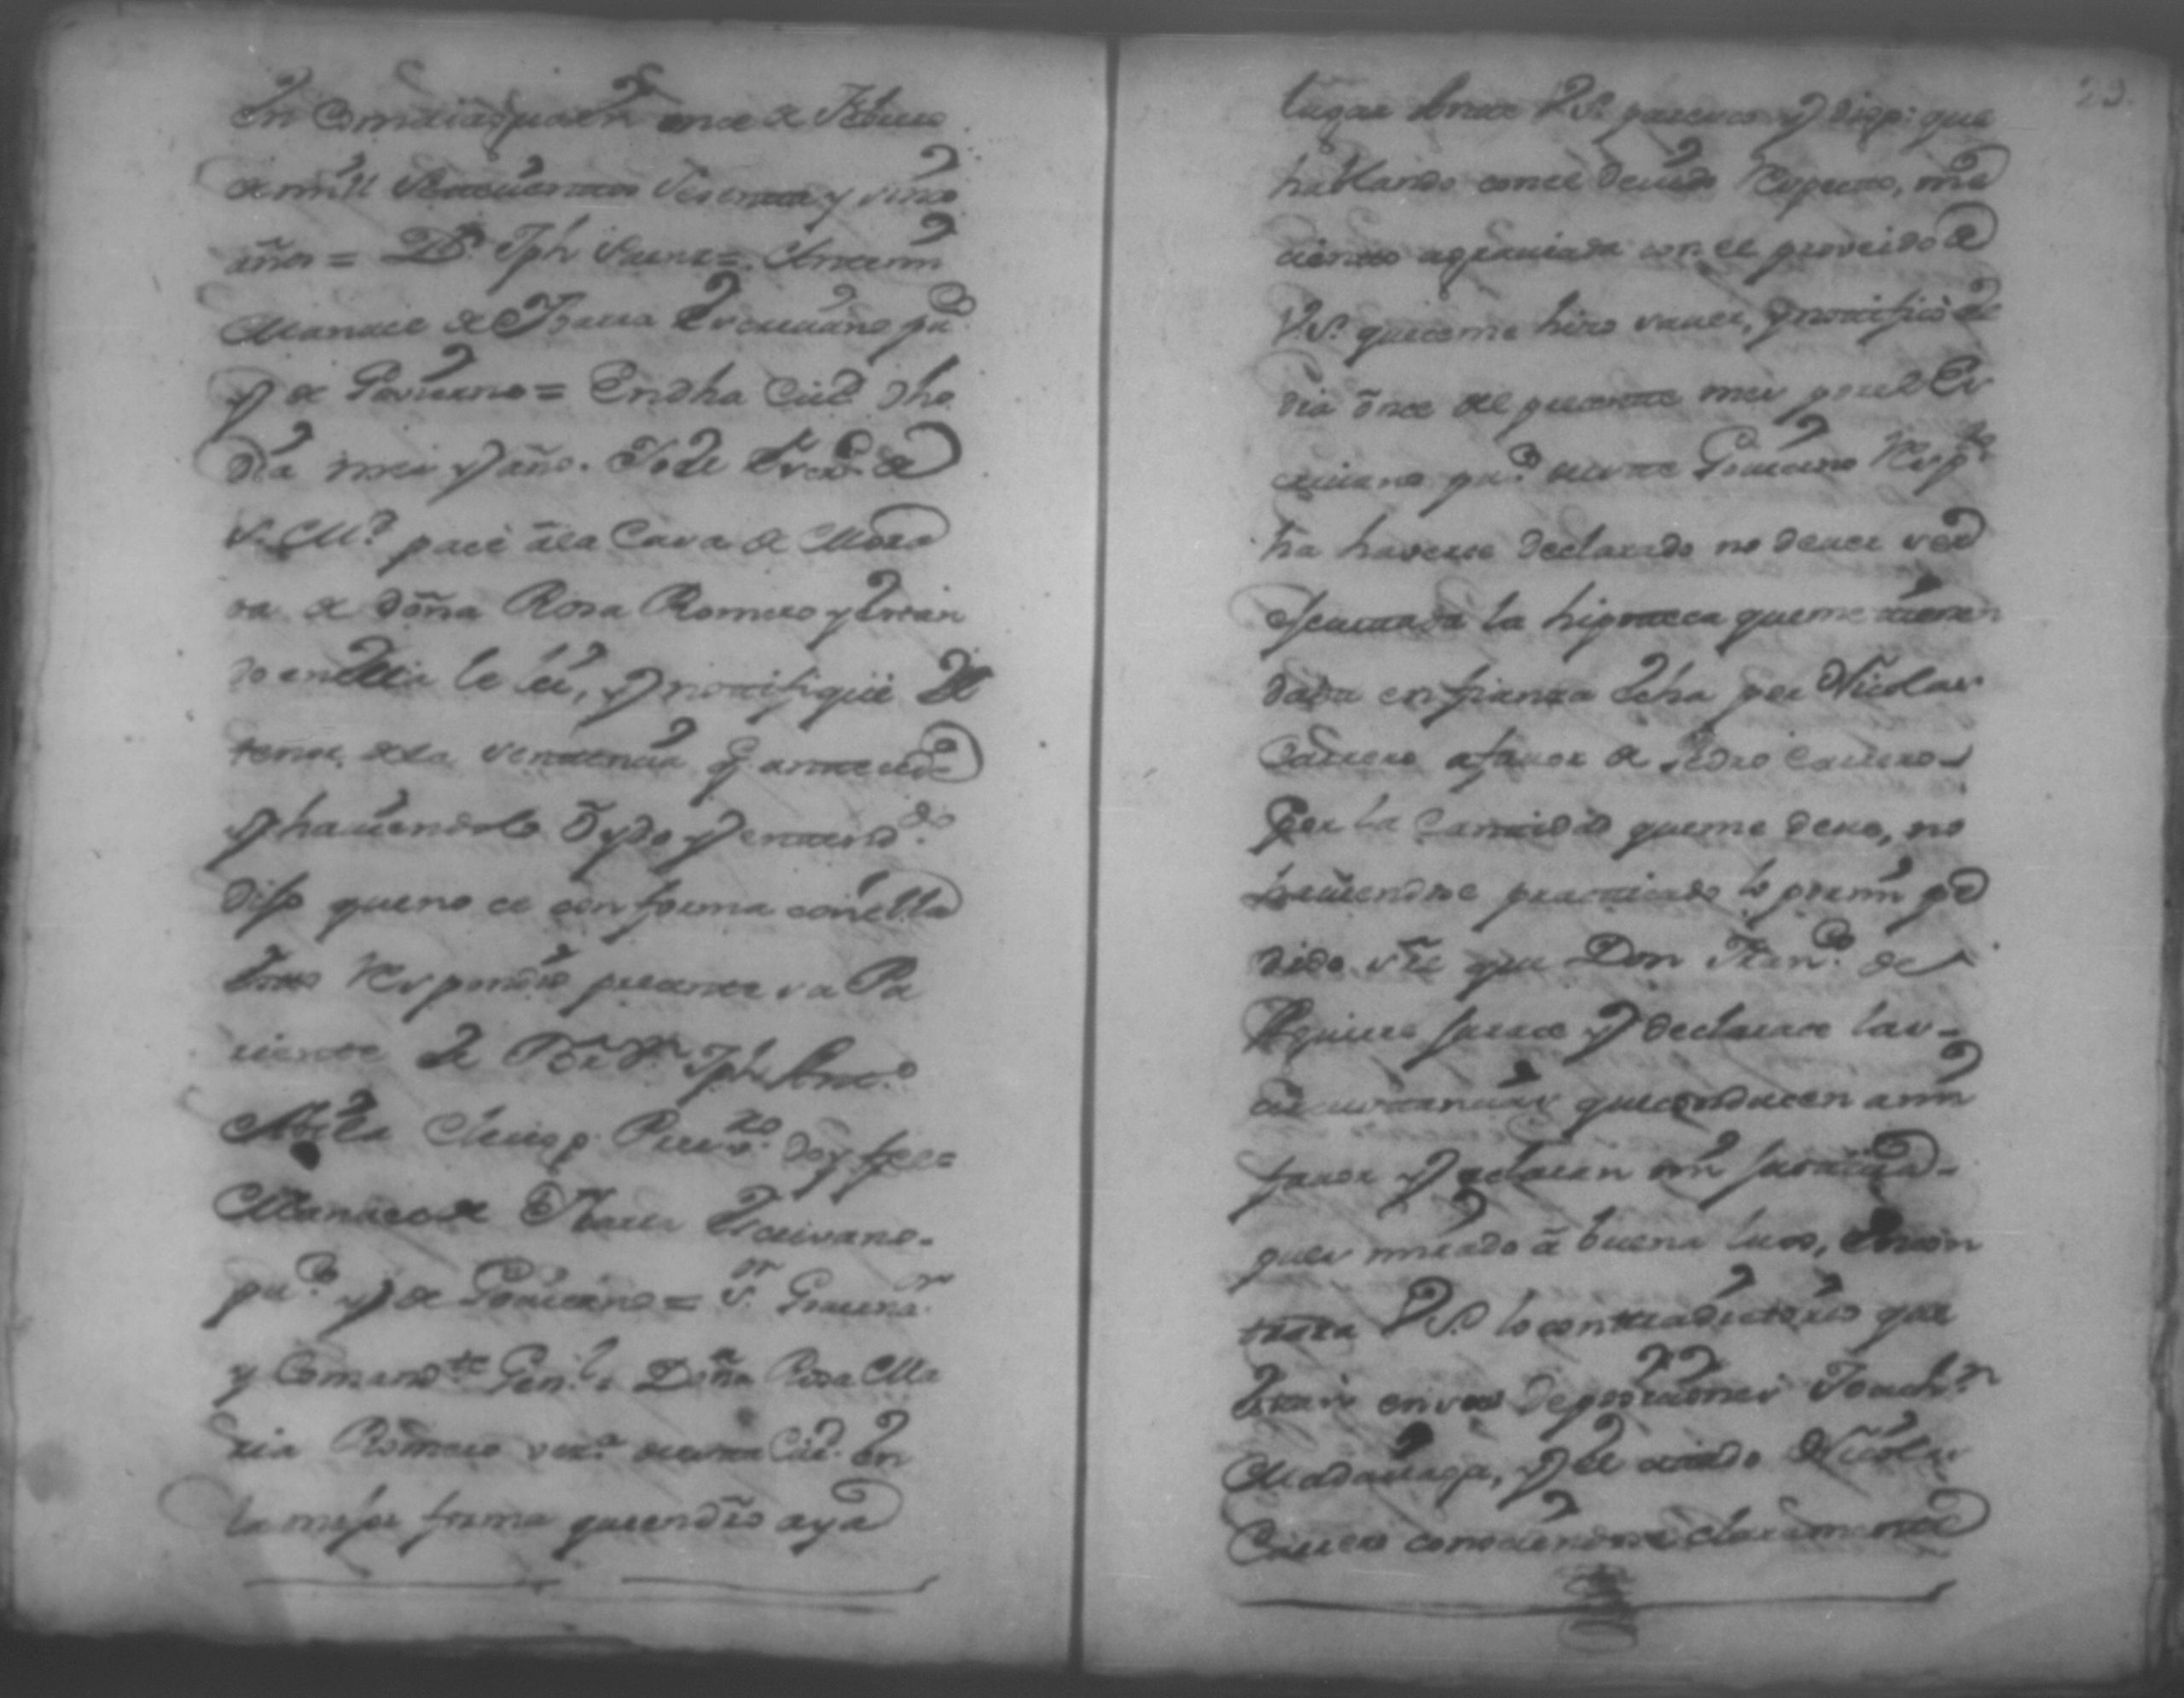 En Comaiaguaen once de Febrero
de mill Setecientos Sesenta y sinco
años = Dr. Jph Saenz = Antemi
Manuel de Ybarra Escriuano pu.co
y de Govierno = En dha Ciud. dho
dia mes y año. Yo el Escno. de
S. M.d pacé â la Casa de Mora
da de doña Rosa Romero y estan
do en ella le lei, y notifiqué El
tenor de la Sentencia q antecede
y haviendolo Oydo y entend.do
dijo que no ce conforma con ella
Esto respondio precente su Pa
riente El Jph Anto.
Clerigo Presv.ro doy fee=
Manuel de Ybarra Escrivano
pu.co y de Govierno = S.or Governa.or
y Comand.te Gen.l Doña Rosa Ma
ria Romero vez.a de esta Ciud. En
la mejor forma que en dro aya
23.
lugar Ante V.S. paresco y digo: que
hablando con el devido Respecto, me
ciento agraviada con el proveido de
V.S. que ce me hizo saver, y notificó el
dia once del precente mes por el Es
criuano pu.co de este Govierno Resp.to
ha haverse declarado no dever ser
Ejecutada la hipoteca que me tiene
dada en fianza dcha por Nicolas
Carrero a favor de Pedro Carrero
Por la Cantidad que me deve, no
haviendose practicado lo por mi pe
dido sre que Don Fran.co de
Aguirre jurace y declarace las
circunstancias que conducen a mi
favor y aclaran mi justicia
pues mirado â buena luz, encon
trara V.S. lo contradictorio que
Estan en sus depociciones Joach.n
Madariaga, y el citado Nicolas
Carrero conociendose claramente